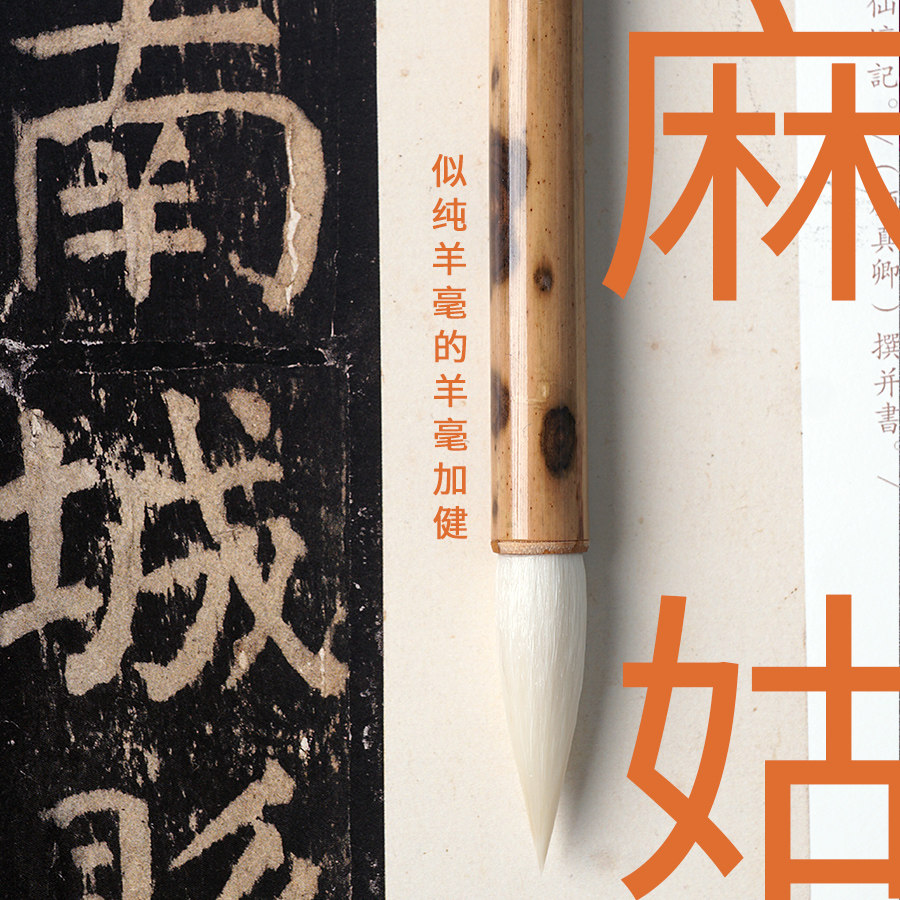 仙壇記。/（顏真卿）撰并書。/
麻姑
似纯羊毫的羊毫加健
南城